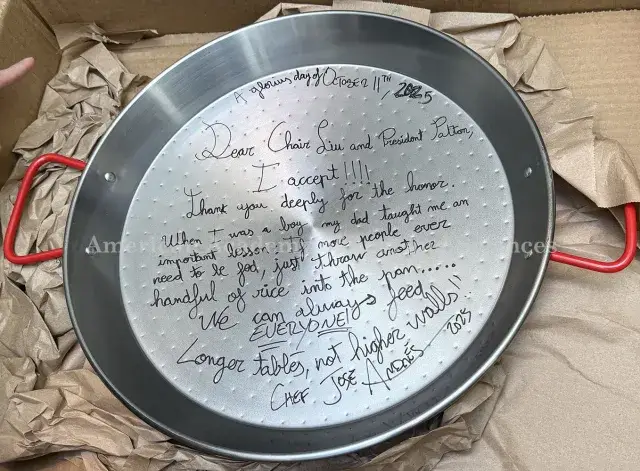 A glorius day of OCTOBER 11TH, 2025
Dear Chair Liu and President Patton,
I accept!!!!
Thank you deeply for the honor.
When I was a boy my dad taught me an
important lesson if more people ever
need to be fed, just throw another
handful of rice into the pan.....
We can always feed
EVERYONE!
Longer tables, not higher walls!!
CHEF JOSÉ ANDRÉS 2025